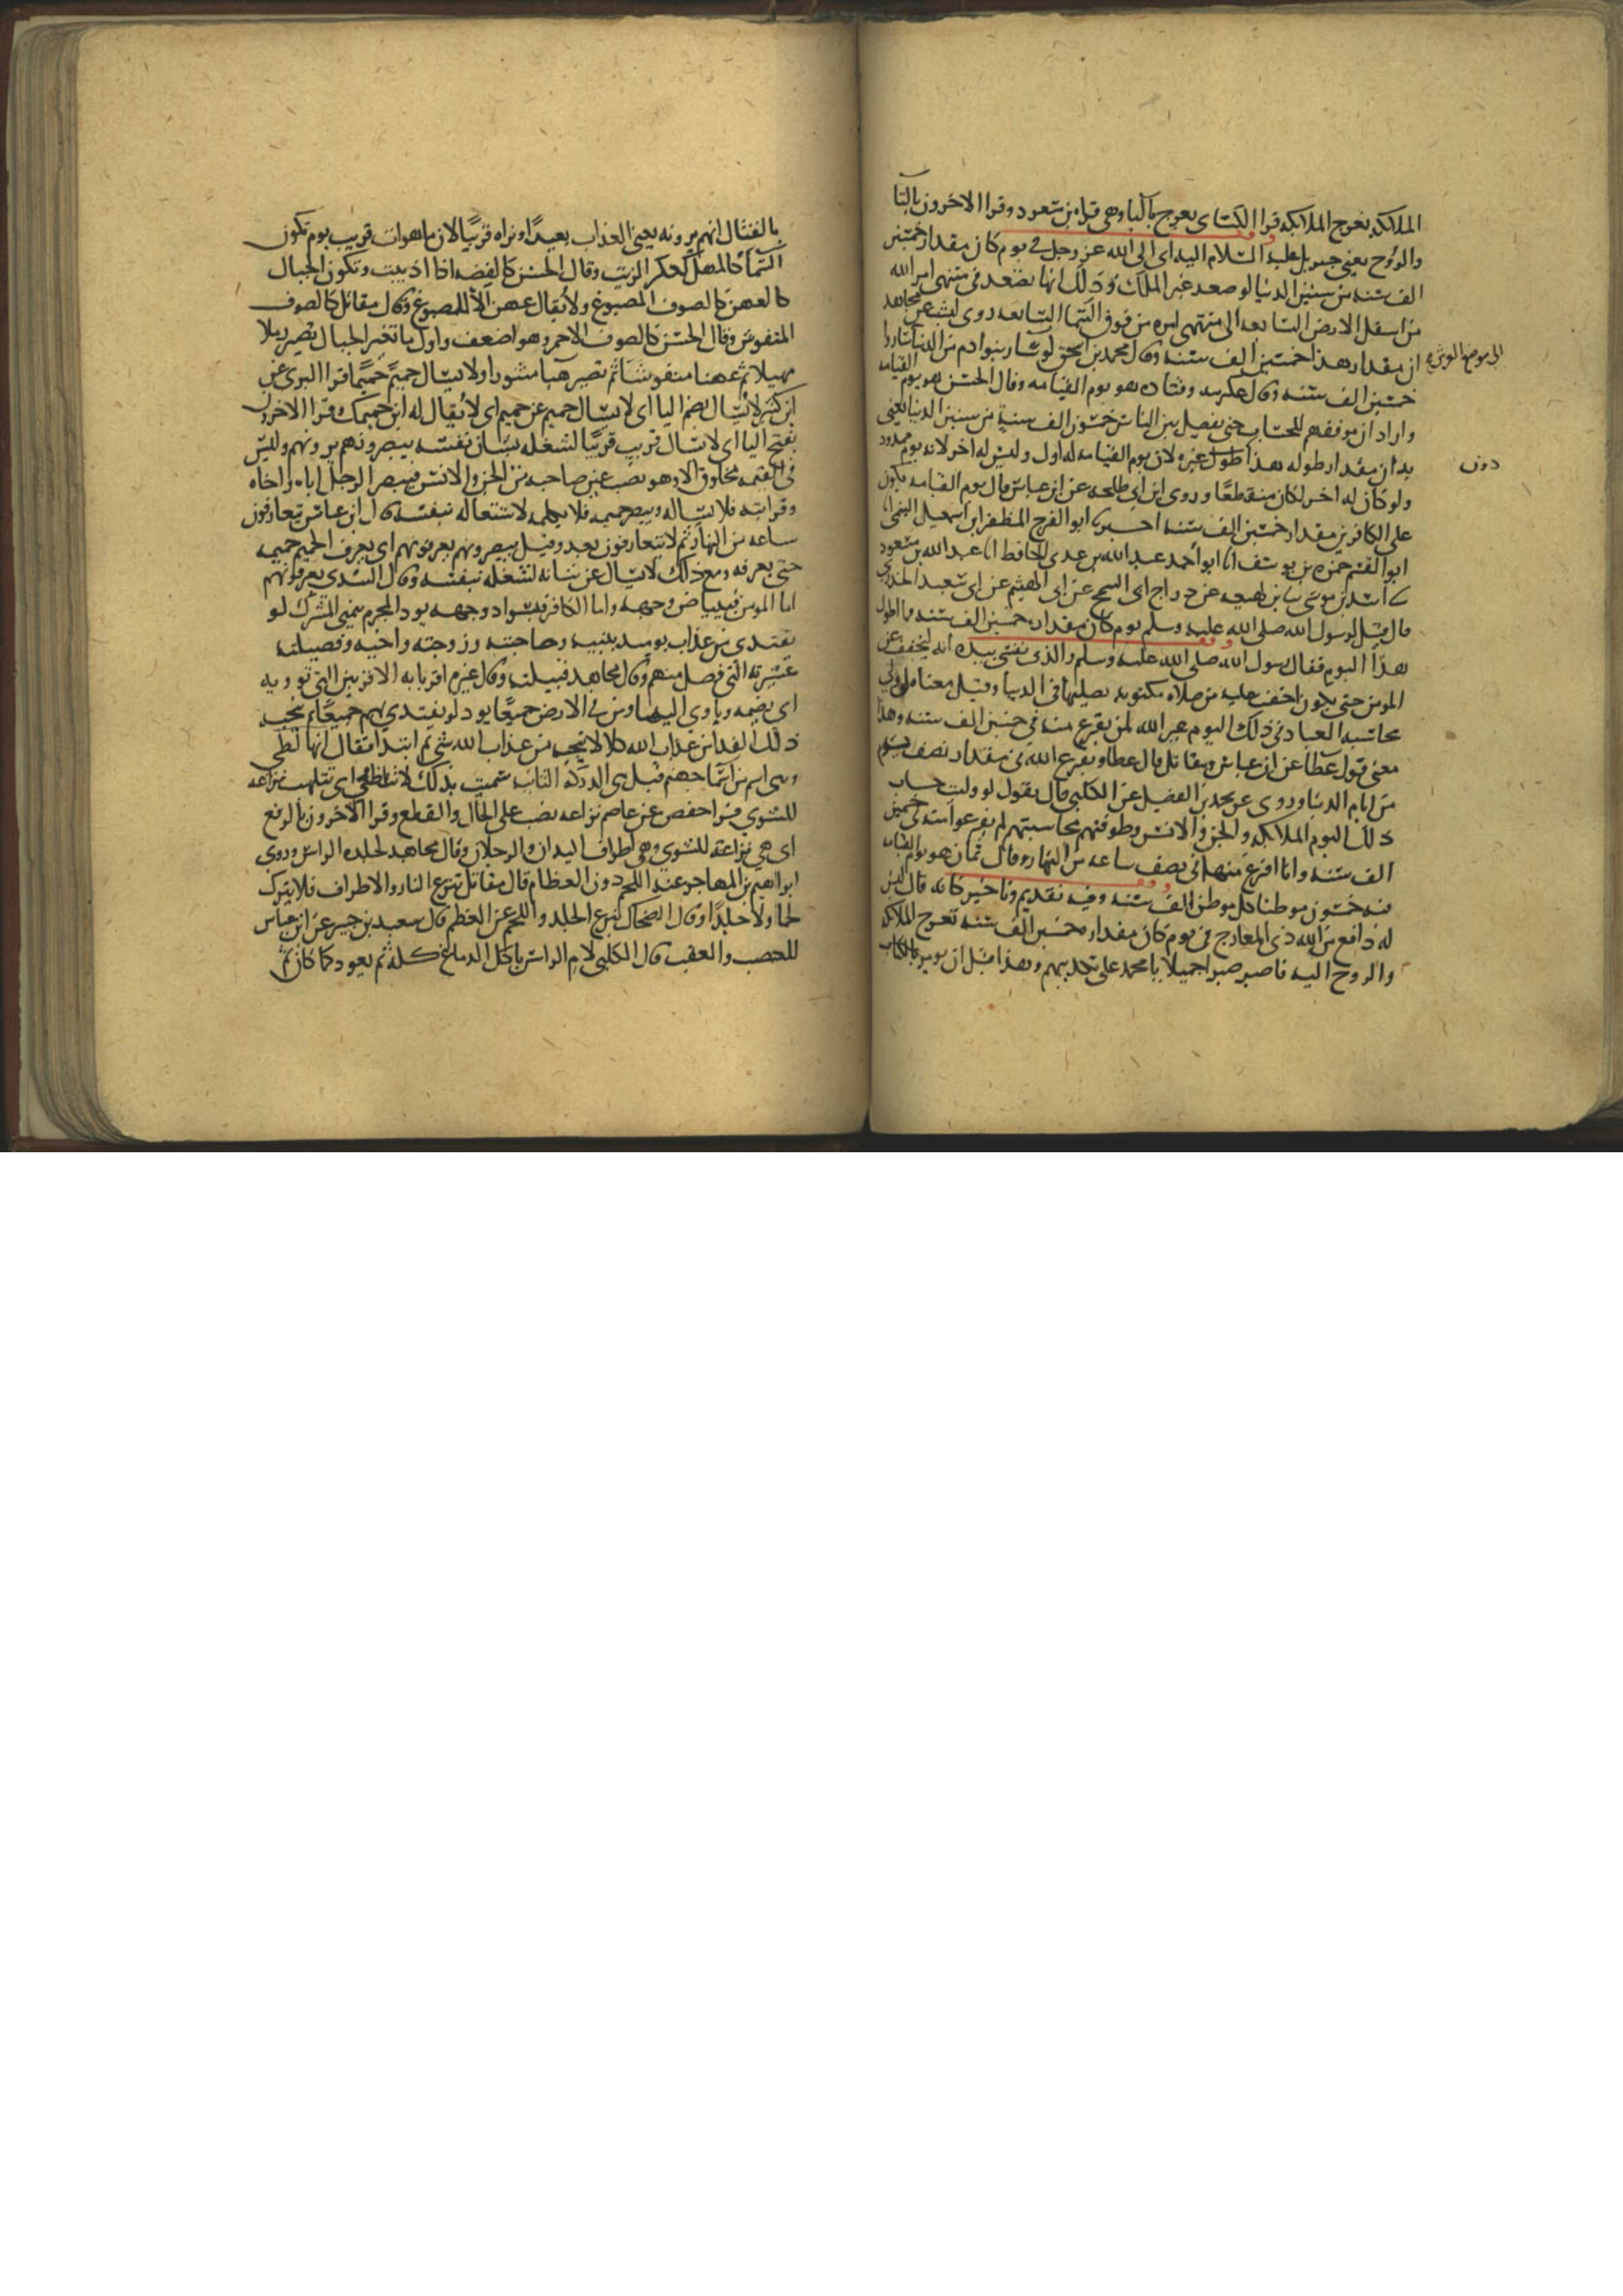 الملائكة تعرج الملائكة قرا الكسائ يعرج باليا وهي قراه بن مسعود وقرا الاخرون بالتا
والروح يعني جبريل عليه السلام اليه اى الى الله عز وجل في يوم كان مقداره خمسين
الف سنه من سنين الدنيا لو صعد غير الملك وذلك انها تصعد فى منتهى امر الله
من اسفل الارض السابعه الى منتهى امره من فوق السما السابعه روى ليث عن مجاهد
ان مقدار هذا خمسين الف سنه وقال محمد بن اسحق لو سار بنوا ادم من الدنيا ساروا
الى موضع العرش
خمسين الف سنه وقال عكرمه وقتاده هو يوم القيامه وقال الحسن هو يوم القيامه
واراد ان موقفهم للحساب حتى يفصل بين الناس خمسون الف سنة من سنين الدنيا يعني
به ان مقدار طوله هذا طول غيره لان يوم القيامه له اول وليس له اخر لانه يوم ممدود
دون
ولو كان له اخر لكان منقطعا وروى ابن ابي طلحه عن ابن عباس قال يوم القيامه يكون
على الكافرين مقدار خمسين الف سنه اخبرنا ابو الفرج المظفر ابن اسمعيل التميمى انا
ابو القسم حمزه بن يوسف انا ابو احمد عبد الله بن عدى الحافظ انا عبد الله بن سعود
اسد بن موسى بن لهيعه عن دراج ابى السمح عن ابى الهيثم عن ابى سعيد الخدرى
قال قيل لرسول الله صلى الله عليه وسلم يوم كان مقداره خمسين الف سنه فما اطول
هذا اليوم فقال رسول الله صلى الله عليه وسلم والذى نفسى بيده انه ليخفف عن
المومن حتى يكون اخف عليه من صلاه مكتوبه يصليها فى الدنيا وقيل معناه لو ولي
محاسبه العباد فى ذلك اليوم غير الله لمن يفرغ منه فى خمسين الف سنه وهذا
معنى قول عطا عن ابن عباس ومقاتل قال عطا ويفرغ الله فى مقدار نصف يوم
من ايام الدنيا وروى عن محمد بن الفضيل عن الكلبى قال يقول لو وليت حساب
ذلك اليوم الملائكه والجن والانس وطوقتهم محاسبتهم لم يفرغوا منه فى خمسين
الف سنه وانا افرغ منها فى نصف ساعه من النهار وقال يمان هو يوم القيامه
فيه خمسون موطنا كل موطن الف سنه وفيه تقديم وتاخير كانه قال ليس
له دافع من الله ذى المعارج فى يوم كان مقداره خمسين الف سنه تعرج الملائكه
والروح اليه فاصبر صبرا جميلا يا محمد على تكذيبهم وهذا قبل ان يومر
بالقتال انهم يرونه يعنى العذاب بعيدا ونراه قريبا لان ما هو ات قريب يوم تكون
السما كالمهل كعكر الزيت وقال الحسن كالفضه اذا اذيبت وتكون الجبال
كالعهن كالصوف المصبوغ ولا يقال عهن الا للمصبوغ وقال مقاتل كالصوف
المنفوش وقال الحسن كالصوف الاحمر وهو اضعف واول ما تتغير الجبال تصير رملا
مهيلا ثم عهنا منفوشا ثم تصير هبا منثورا ولا يسال حميم حميما قرا البزى عن
ابن كثير لا يسال بضم اليا اى لا يسال حميم عن حميم اى لا يقال له اين حميمك وقرا الاخرون
بفتح اليا اى لا يسال قريب قريبا لشغله بشان نفسه يبصرونهم يرونهم وليس
فى القيمه مخلوق الا وهو نصب عين صاحبه من الجن والانس فيبصر الرجل اباه واخاه
وقرابته فلا يساله ويبصر حميمه فلا يكلمه لاشتغاله بنفسه قال ابن عباس يتعارفون
ساعه من النهار ثم لا يتعارفون بعد وقيل يبصرونهم يعرفونهم اى يعرف الحميم حميمه
حتى يعرفه ومع ذلك لا يسال عن شانه لشغله بنفسه وقال السدى يعرفونهم
اما المومن فببياض وجهه واما الكافر فبسواد وجهه يود المجرم يتمنى المشرك لو
يفتدى من عذاب يوميذ ببنيه وصاحبته وزوجته واخيه وفصيلته
عشيرته التى فصل منهم وقال مجاهد قبيلته وقال غيره اقربايه الاقربين التى توويه
اى تضمه وياوى اليها ومن في الارض جميعا يود لو يفتدى بهم جميعا ثم ينجيه
ذلك الفدا من عذاب الله كلا لا ينجيه من عذاب الله شى ثم ابتدا فقال انها لظى
وهى اسم من اسما جهنم قيل هى الدركه الثانيه سميت بذلك لانها تتلظى اى تتلهب نزاعه
للشوى قرا حفص عن عاصم نزاعه نصب على الحال والقطع وقرا الاخرون بالرفع
اى هى نزاعة للشوى وهى اطراف اليدان والرجلان وقال مجاهد لجلده الراس وروى
ابراهيم بن المهاجر عنه اللحم دون العظام قال مقاتل تنزع النار والاطراف فلا تترك
لحما ولا جلدا وقال الضحاك تنزع الجلد واللحم عن العظم قال سعيد بن جبير عن ابن عباس
للعصب والعقب قال الكلبى لام الراس ياكل الدماغ كله ثم يعود كما كان ثم